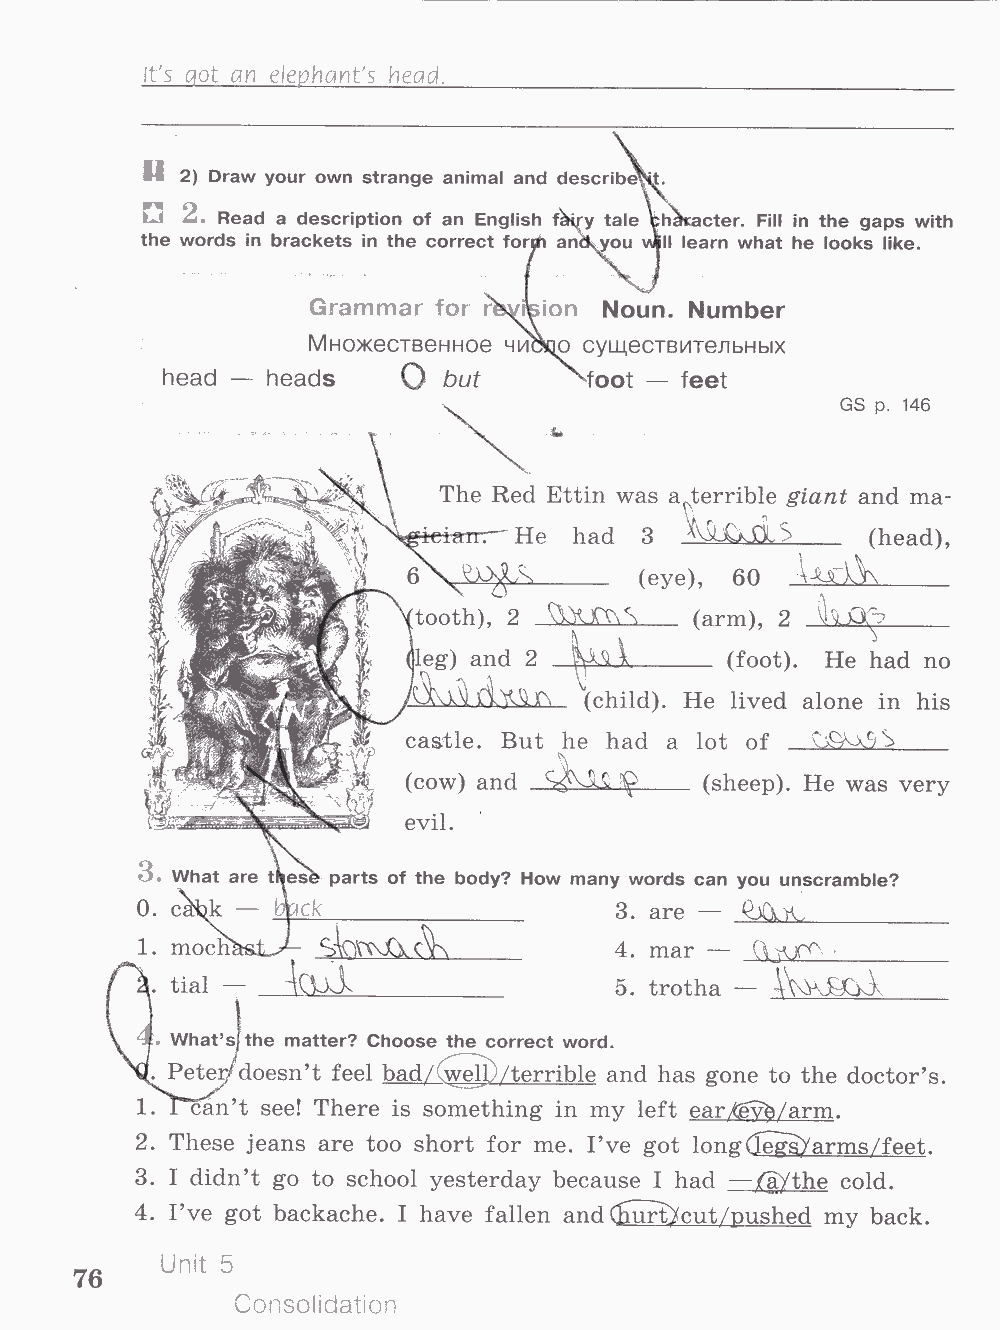 It's got an elephant's head.
2) Draw your own strange animal and describe it.
2. Read a description of an English fairy tale character. Fill in the gaps with
the words in brackets in the correct form and you will learn what he looks like.
Grammar for revision Noun. Number
Множественное число существительных
head — heads but foot — feet
GS p. 146
The Red Ettin was a terrible giant and ma-
gician. He had 3 heads (head),
6 eyes (eye), 60 teeth
(tooth), 2 arms (arm), 2 legs
(leg) and 2 feet (foot). He had no
children (child). He lived alone in his
castle. But he had a lot of cows
(cow) and sheep (sheep). He was very
evil.
3. What are these parts of the body? How many words can you unscramble?
0. cabk — back 3. are — ear
1. mochast — stomach 4. mar — arm
2. tial — tail 5. trotha — throat
4. What's the matter? Choose the correct word.
0. Peter doesn't feel bad/well/terrible and has gone to the doctor's.
1. I can't see! There is something in my left ear/eye/arm.
2. These jeans are too short for me. I've got long legs/arms/feet.
3. I didn't go to school yesterday because I had —/a/the cold.
4. I've got backache. I have fallen and hurt/cut/pushed my back.
Unit 5
76
Consolidation